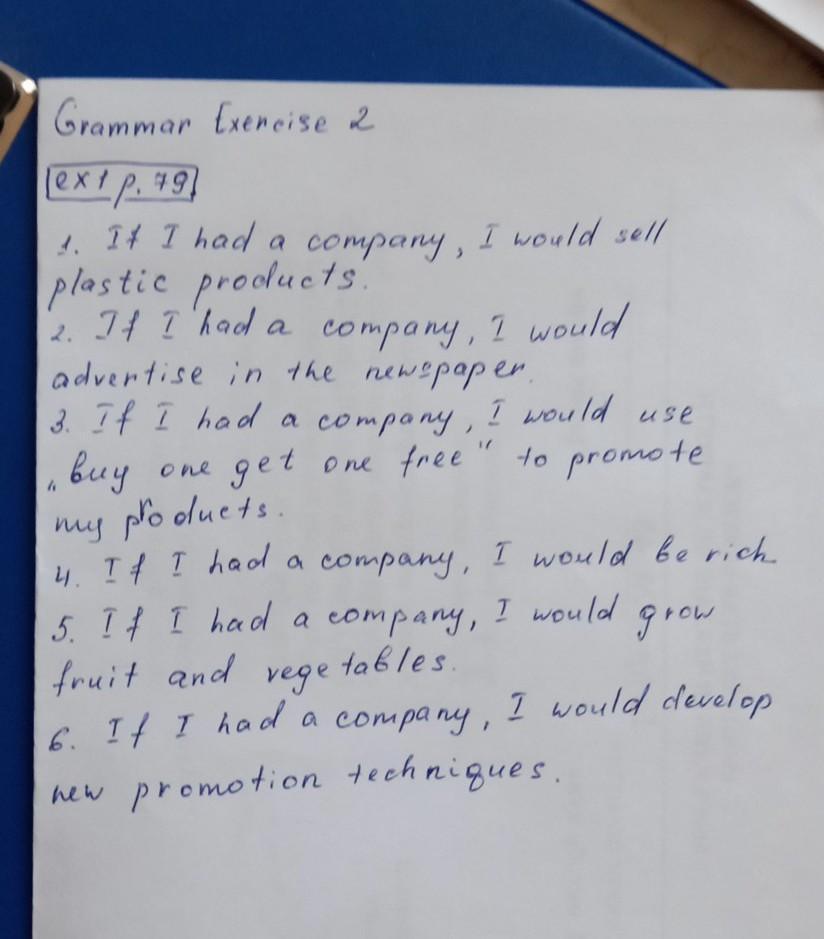 Grammar Exercise 2
ex 1 p. 79
1. If I had a company, I would sell
plastic products.
2. If I had a company, I would
advertise in the newspaper.
3. If I had a company, I would use
„buy one get one free" to promote
my products.
4. If I had a company, I would be rich
5. If I had a company, I would grow
fruit and vegetables.
6. If I had a company, I would develop
new promotion techniques.